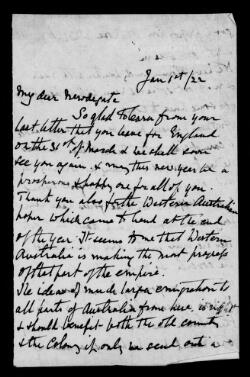 Jan 1st/22
My dear Newdegate
So glad to learn from your
last letter that you leave for England
on the 31st of March & we shall soon
see you again & may this new year be a
prosperous & happy one for all of you.
Thank you also for the Western Australian
paper which came to hand at the end
of the year. It seems to me that Western
Australia is making the most progress
of that part of the empire.
The idea of much larger emigration to
all parts of Australia from here is right
& should benefit both the old country
& the Colony if only we send out a